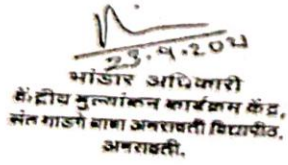 23.9.2021
भांडार अधिकारी
केंद्रीय मुल्यांकन कार्यक्रम केंद्र,
संत गाडगे बाबा अमरावती विद्यापीठ,
अमरावती.